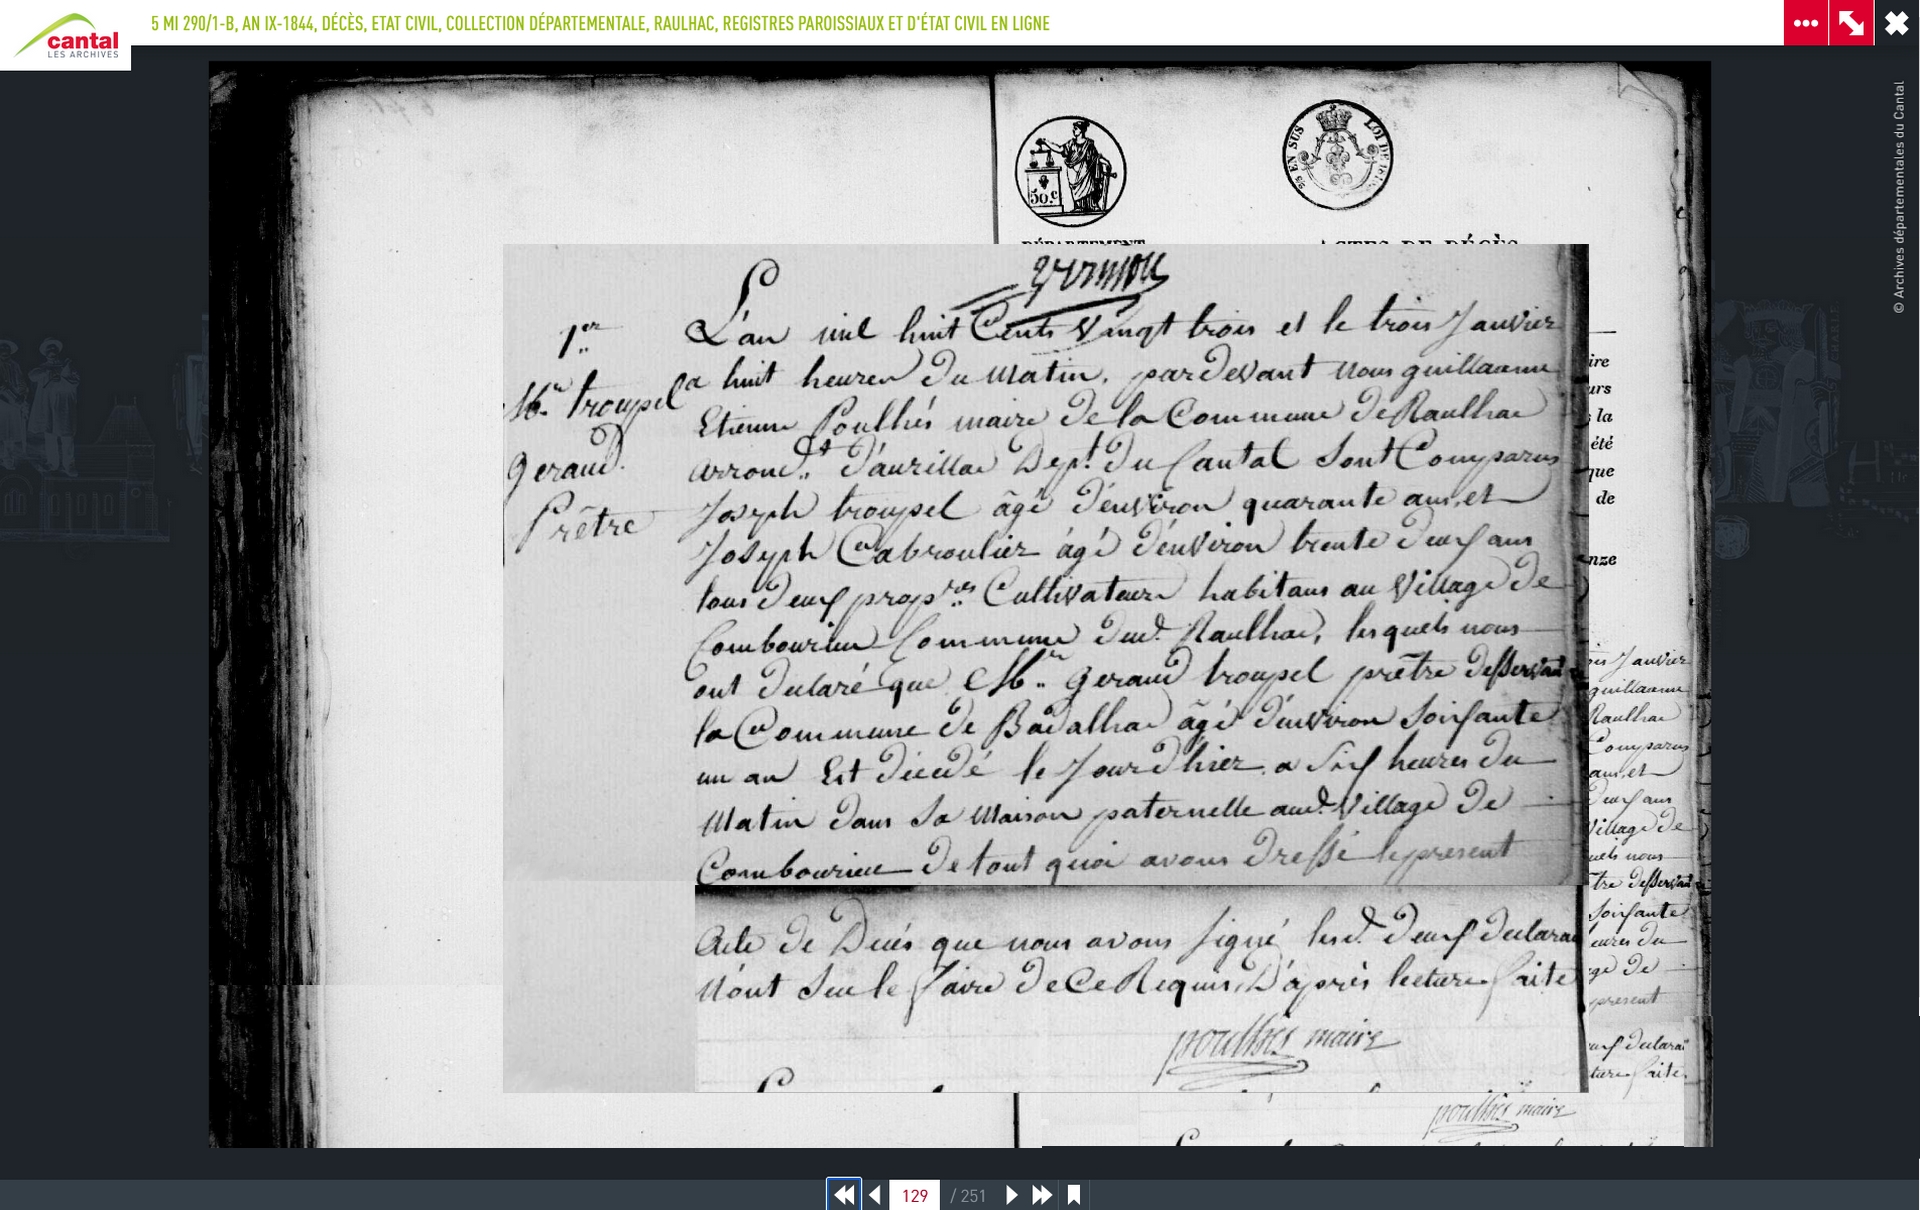 cantal
LES ARCHIVES
5 MI 290/1-B, AN IX-1844, DÉCÈS, ETAT CIVIL, COLLECTION DÉPARTEMENTALE, RAULHAC, REGISTRES PAROISSIAUX ET D'ÉTAT CIVIL EN LIGNE
© Archives départementales du Cantal
50.c
25 EN SUS LOI DE
DÉPARTEMENT
ACTES DE DÉCÈS
1.er
M.r troupel
geraud.
Prêtre
L'an mil huit Cents Vingt trois et le trois Janvier
a huit heures du Matin, pardevant nous guillaume
Etienne Poulhès maire de la Commune de Raulhac
arrond.t d'aurillac Dep.t du Cantal Sont Comparus
Joseph troupel âgé d'environ quarante ans, et
Joseph Cabroulier âgé d'environ trente deux ans
tous deux prop.res Cultivateurs habitans au Village de
Combourieu Commune dud. Raulhac, lesquels nous
ont déclaré que M.r geraud troupel prêtre desservant
la Commune de Badalhac âgé d'environ Soixante
un an Est décédé le Jour d'hier a Six heures du
Matin dans Sa Maison paternelle aud. Village de
Combourieu De tout quoi avons dressé le present
Acte de Decés que nous avons signé lesd. deux declarans
N'ont Seu le faire de Ce Requis, D'après lecture faite
poulhès maire
ire
urs
la
été
que
de
nze
Janvier
guillaume
Raulhac
Comparus
ans, et
deux ans
Village de
uels nous
tre desservant
Soixante
eures du
ge De
present
eux declara
ture faite.
poulhès maire
129 / 251